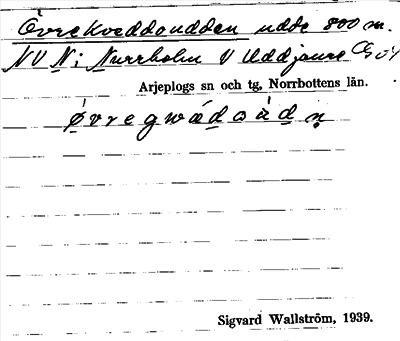 Övrekveddoudden udde 800 m.
NV N; Nurrholm V Uddjaure
Arjeplogs sn och tg, Norrbottens län.
øvregwædoàdn̥
Sigvard Wallström, 1939.